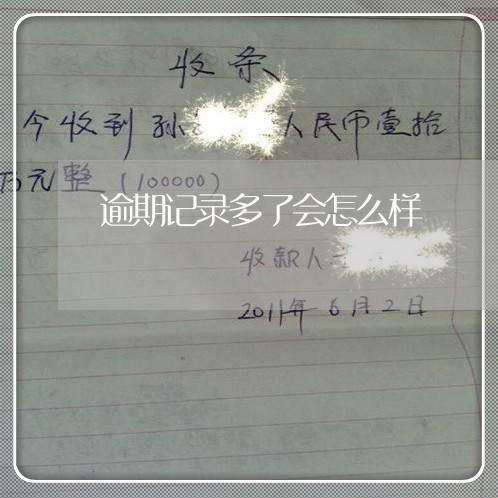 收条
今收到孙 人民币壹拾
万元整(100000)
逾期记录多了会怎么样
收款人
2011年6月2日